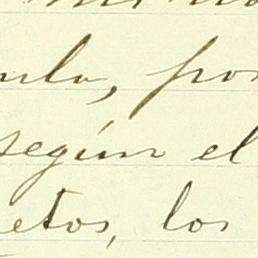 nula, por
según el
etos, los